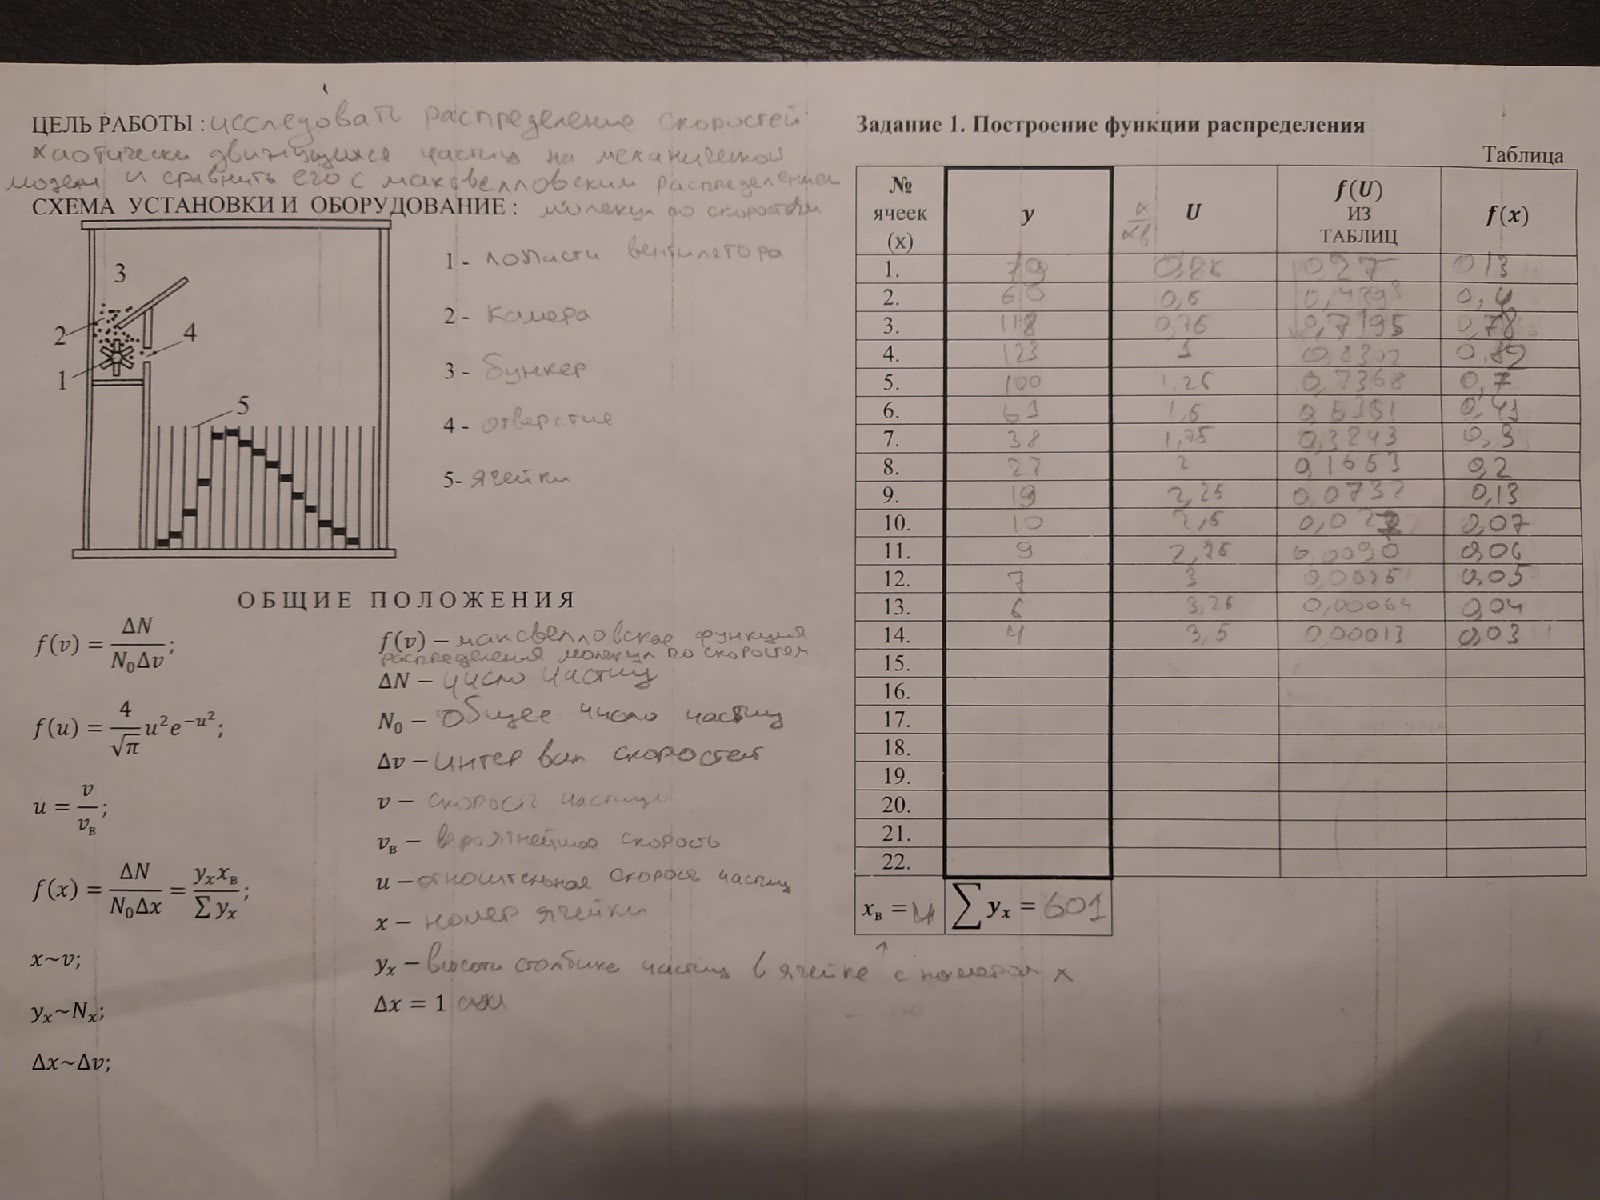 ЦЕЛЬ РАБОТЫ: исследовать распределение скоростей
хаотически движущихся частиц на механической
модели и сравнить его с максвелловским распределением
СХЕМА УСТАНОВКИ И ОБОРУДОВАНИЕ: молекул по скоростям
3
2
4
1
5
1 - лопасти вентилятора
2 - камера
3 - бункер
4 - отверстие
5 - ячейки
ОБЩИЕ ПОЛОЖЕНИЯ
f(v) = ΔN / N₀Δv;
f(v) – максвелловская функция
распределения молекул по скоростям
ΔN – число частиц
f(u) = 4/√π u²e^(-u²);
N₀ – общее число частиц
Δv – интервал скоростей
u = v/vв;
v – скорость частицы
vв – вероятнейшая скорость
f(x) = ΔN / N₀Δx = yₓxв / ∑yₓ;
u – относительная скорость частиц
x – номер ячейки
x~v;
yₓ – высота столбика частиц в ячейке с номером x
yₓ~Nₓ;
Δx = 1
Δx~Δv;
Задание 1. Построение функции распределения
Таблица
№ ячеек (x) y x/xв U f(U) ИЗ ТАБЛИЦ f(x)
1. 19 0,27 0,13
2. 60 0,5 0,4
3. 118 0,7195 0,78
4. 123 1 0,82
5. 100 1,25 0,7368 0,7
6. 1,5
7. 38 1,75 0,3243 0,3
8. 27 2 0,1653 0,2
9. 19 2,25 0,0732 0,13
10. 10 2,5 0,07
11. 9 0,0090 0,06
12. 7 3 0,05
13. 3,25 0,00064 0,04
14. 4 3,5 0,00013 0,03
15.
16.
17.
18.
19.
20.
21.
22.
xв = 4 ∑yₓ = 601